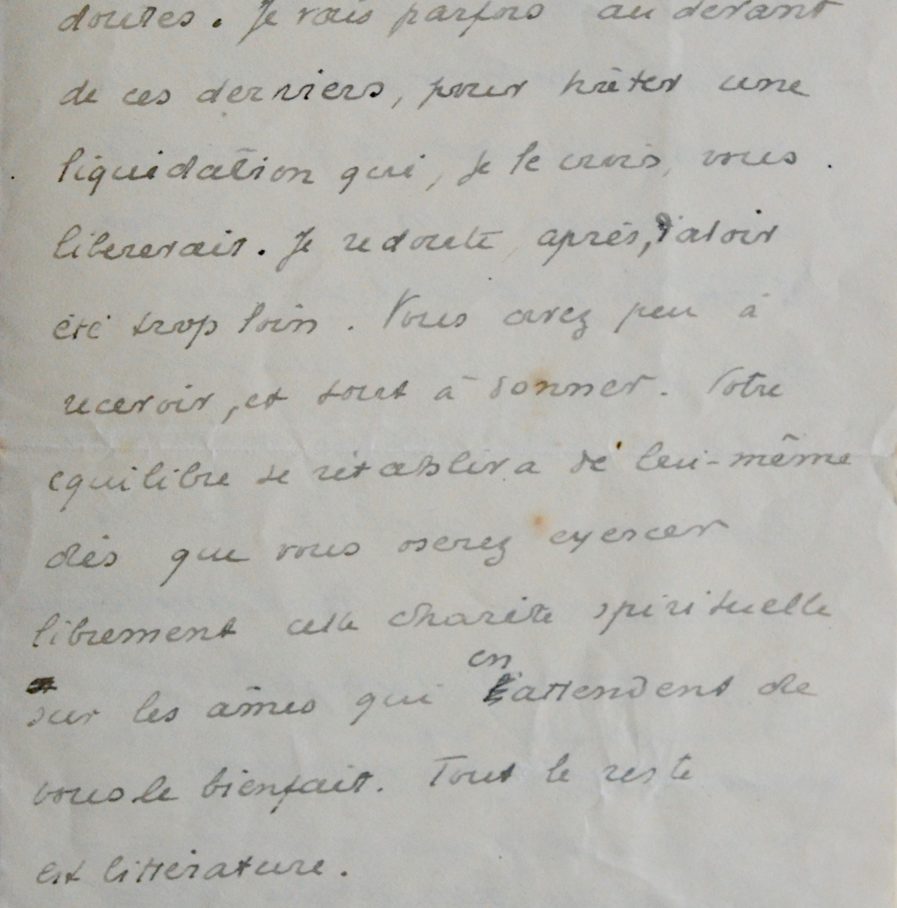 doutes. Je vais parfois au devant
de ces derniers, pour hâter une
liquidation qui, je le crois, vous
libererait. Je redoute après, d'avoir
été trop loin. Vous avez peu à
recevoir, et tout à donner. Votre
equilibre se rétablira de lui-même
dès que vous oserez exercer
librement cette charité spirituelle
sur les âmes qui en attendent de
vous le bienfait. Tout le reste
est littérature.